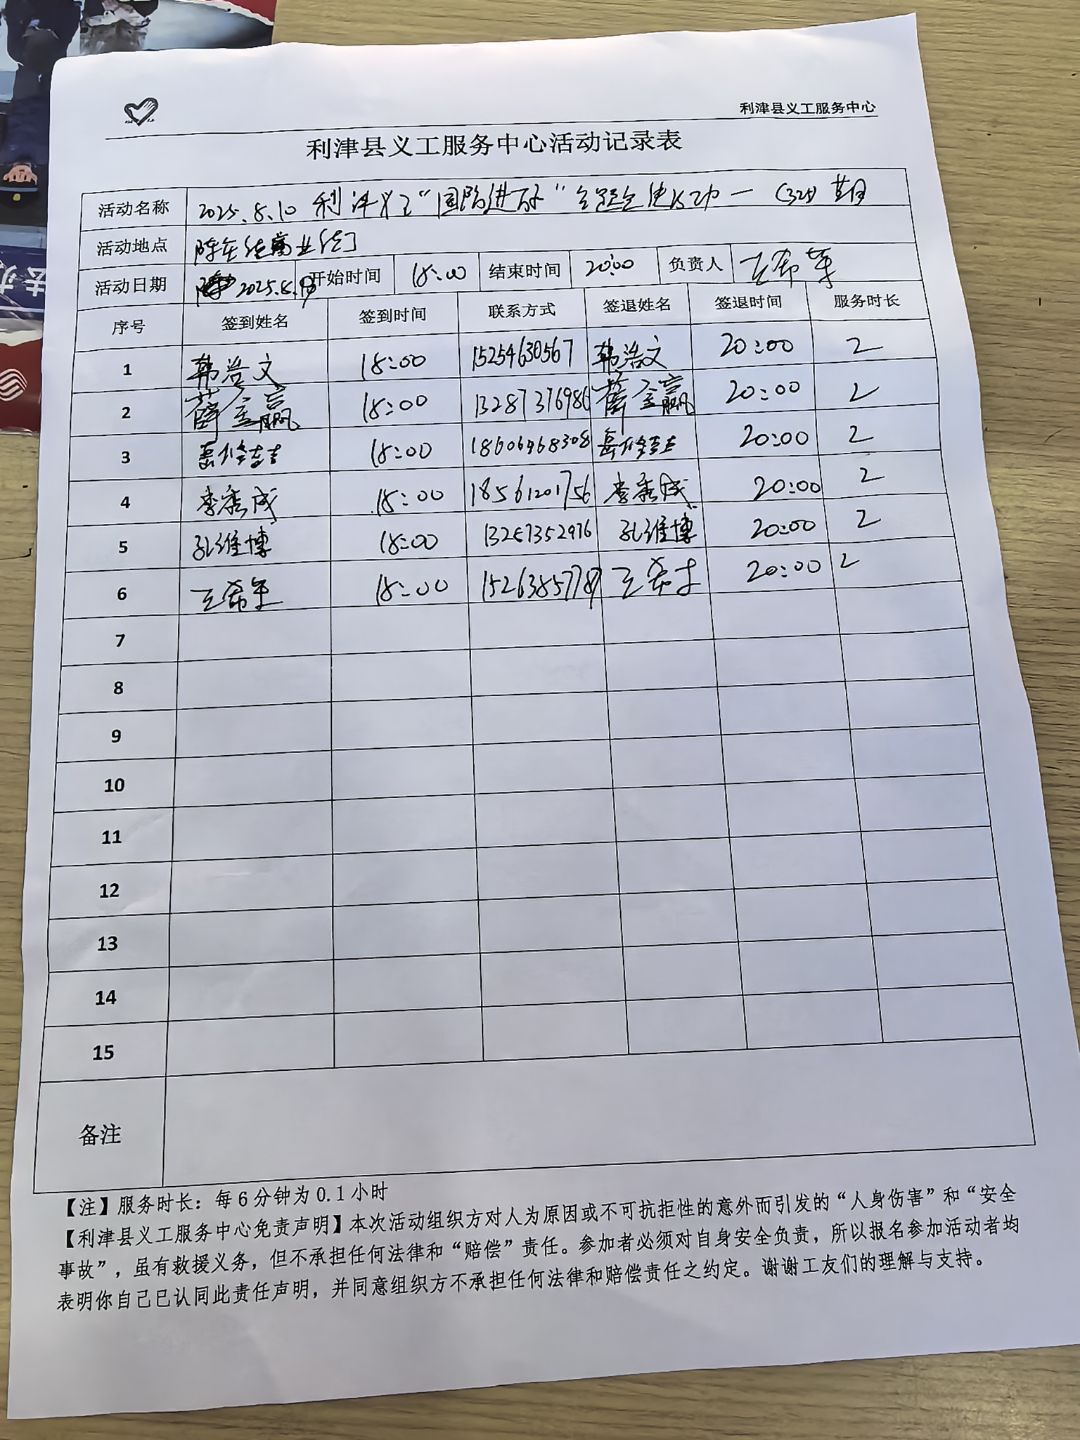 利津县义工服务中心
利津县义工服务中心活动记录表
活动名称 2025.8.10 利津义工“国防进 ” (32 ) 期
活动地点 陈庄 商业街
活动日期 2025.8. 开始时间 18:00 结束时间 20:00 负责人 王希军
序号 签到姓名 签到时间 联系方式 签退姓名 签退时间 服务时长
1 韩浩文 18:00 15254630567 韩浩文 20:00 2
2 薛金赢 18:00 13287376986 薛金赢 20:00 2
3 18:00 18606468308 20:00 2
4 李秀成 18:00 18561201756 李秀成 20:00 2
5 孔维博 18:00 13257352976 孔维博 20:00 2
6 王希军 18:00 15263857787 王希 20:00 2
7
8
9
10
11
12
13
14
15
备注
【注】服务时长：每6分钟为0.1小时
【利津县义工服务中心免责声明】本次活动组织方对人为原因或不可抗拒性的意外而引发的“人身伤害”和“安全
事故”，虽有救援义务，但不承担任何法律和“赔偿”责任。参加者必须对自身安全负责，所以报名参加活动者均
表明你自己已认同此责任声明，并同意组织方不承担任何法律和赔偿责任之约定。谢谢工友们的理解与支持。